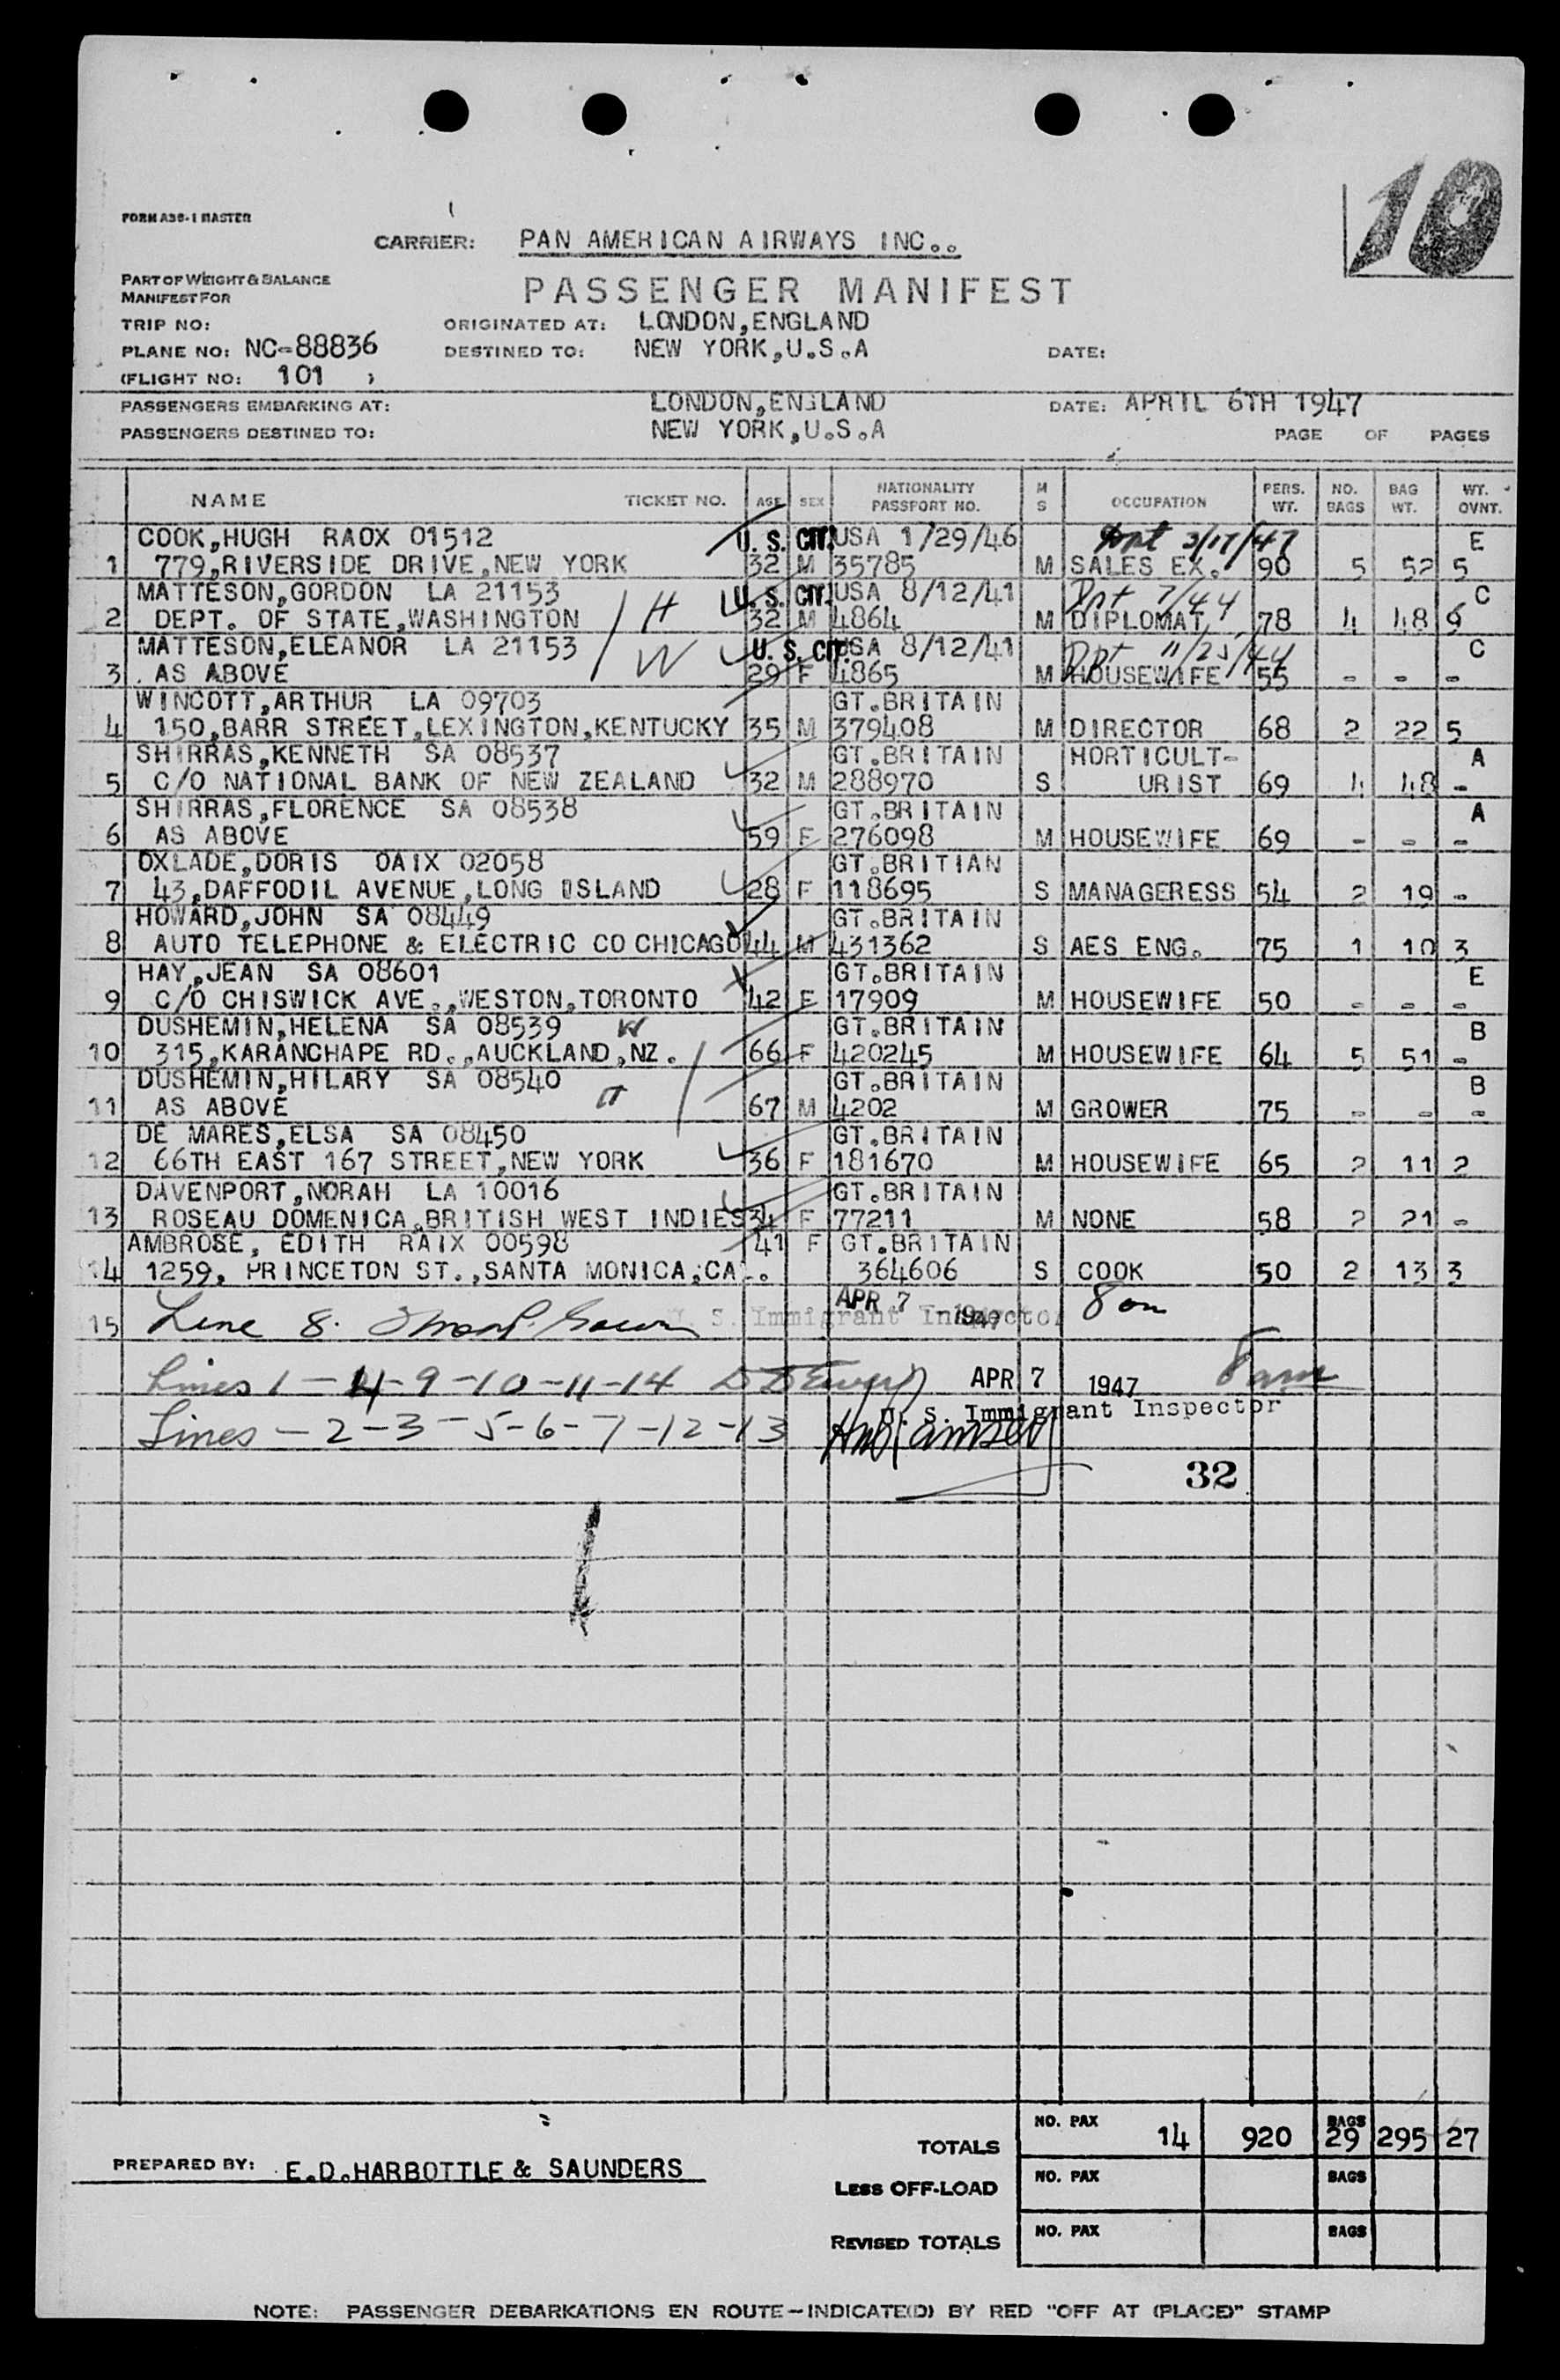 10
FORM A36-1 MASTER
CARRIER: PAN AMERICAN AIRWAYS INC..
PART OF WEIGHT & BALANCE
MANIFEST FOR
PASSENGER MANIFEST
TRIP NO: ORIGINATED AT: LONDON,ENGLAND
PLANE NO: NC-88836 DESTINED TO: NEW YORK,U.S.A DATE:
(FLIGHT NO: 101 )
PASSENGERS EMBARKING AT: LONDON,ENGLAND DATE: APRIL 6TH 1947
PASSENGERS DESTINED TO: NEW YORK,U.S.A PAGE OF PAGES
NAME TICKET NO. AGE SEX NATIONALITY PASSPORT NO. M S OCCUPATION PERS. WT. NO. BAGS BAG WT. WT. OVNT.
COOK,HUGH RAOX 01512 U. S. CIT. USA 1/29/46 3/17/47 E
1 779,RIVERSIDE DRIVE,NEW YORK 32 M 35785 M SALES EX. 90 5 52 5
MATTESON,GORDON LA 21153 H U. S. CIT. USA 8/12/41 Dpt 7/44 C
2 DEPT. OF STATE,WASHINGTON 32 M 4864 M DIPLOMAT 78 4 48 9
MATTESON,ELEANOR LA 21153 W U. S. CIT. USA 8/12/41 Dpt 11/25/44 C
3 AS ABOVE 29 F 4865 M HOUSEWIFE 55 - - -
WINCOTT,ARTHUR LA 09703 GT.BRITAIN
4 150,BARR STREET,LEXINGTON,KENTUCKY 35 M 379408 M DIRECTOR 68 2 22 5
SHIRRAS,KENNETH SA 08537 GT.BRITAIN HORTICULT- A
5 C/O NATIONAL BANK OF NEW ZEALAND 32 M 288970 S URIST 69 4 48 -
SHIRRAS,FLORENCE SA 08538 GT.BRITAIN A
6 AS ABOVE 59 F 276098 M HOUSEWIFE 69 - - -
OXLADE,DORIS OAIX 02058 GT.BRITIAN
7 43,DAFFODIL AVENUE,LONG ISLAND 28 F 118695 S MANAGERESS 54 2 19 -
HOWARD,JOHN SA 08449 GT.BRITAIN
8 AUTO TELEPHONE & ELECTRIC CO CHICAGO 44 M 431362 S AES ENG. 75 1 10 3
HAY,JEAN SA 08601 GT.BRITAIN E
9 C/O CHISWICK AVE.,WESTON,TORONTO 42 F 17909 M HOUSEWIFE 50 - - -
DUSHEMIN,HELENA SA 08539 W GT.BRITAIN B
10 315,KARANCHAPE RD.,AUCKLAND,NZ. 66 F 420245 M HOUSEWIFE 64 5 51 -
DUSHEMIN,HILARY SA 08540 GT.BRITAIN B
11 AS ABOVE 67 M 4202 M GROWER 75 - - -
DE MARES,ELSA SA 08450 GT.BRITAIN
12 66TH EAST 167 STREET,NEW YORK 36 F 181670 M HOUSEWIFE 65 2 11 2
DAVENPORT,NORAH LA 10016 GT.BRITAIN
13 ROSEAU DOMENICA,BRITISH WEST INDIES 34 F 77211 M NONE 58 2 21 -
AMBROSE, EDITH RAIX 00598 41 F GT.BRITAIN
14 1259, PRINCETON ST.,SANTA MONICA,CAL. 364606 S COOK 50 2 13 3
15 Line 8. U. S. Immigrant Inspector APR 7 1947 8 am
Lines 1-4-9-10-11-14 APR 7 1947 8 am
U. S. Immigrant Inspector
Lines - 2-3-5-6-7-12-13
32
TOTALS NO. PAX 14 920 BAGS 29 295 27
PREPARED BY: E.D.HARBOTTLE & SAUNDERS
LESS OFF-LOAD NO. PAX BAGS
REVISED TOTALS NO. PAX BAGS
NOTE: PASSENGER DEBARKATIONS EN ROUTE-INDICATE(D) BY RED "OFF AT (PLACE)" STAMP